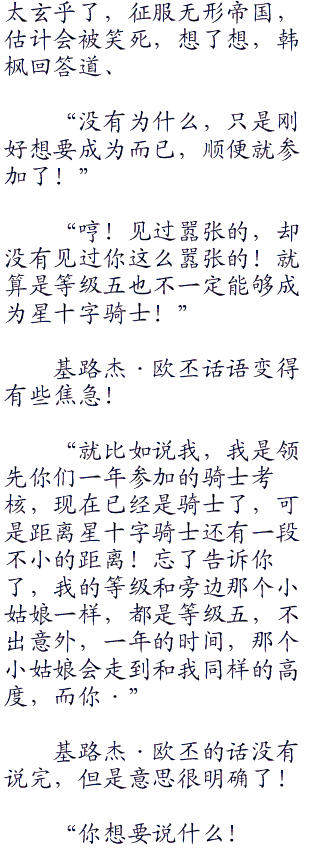 太玄乎了，征服无形帝国，
估计会被笑死，想了想，韩
枫回答道、
“没有为什么，只是刚
好想要成为而已，顺便就参
加了！”
“哼！见过嚣张的，却
没有见过你这么嚣张的！就
算是等级五也不一定能够成
为星十字骑士！”
基路杰·欧丕话语变得
有些焦急！
“就比如说我，我是领
先你们一年参加的骑士考
核，现在已经是骑士了，可
是距离星十字骑士还有一段
不小的距离！忘了告诉你
了，我的等级和旁边那个小
姑娘一样，都是等级五，不
出意外，一年的时间，那个
小姑娘会走到和我同样的高
度，而你·”
基路杰·欧丕的话没有
说完，但是意思很明确了！
“你想要说什么！